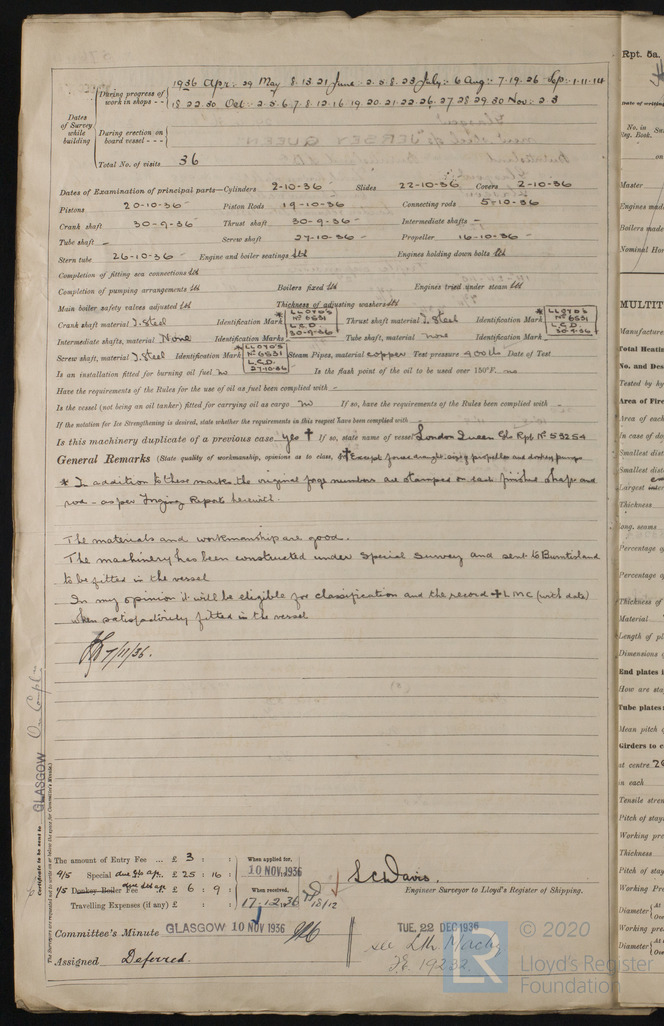 During progress of work in shops - -
1936 Apr: 29 May 8.13.21 June 2.5.8.23 July: 6 Aug: 7.19.26 Sep: 1.11.14
18.22.30 Oct: 2.5.6.7.8.12.16.19.20.21.22.26.27.28.29.30 Nov: 2.3
Dates of Survey while building
During erection on board vessel - - -
Total No. of visits 36
Dates of Examination of principal parts—Cylinders 2-10-36 Slides 22-10-36 Covers 2-10-36
Pistons 20-10-36 Piston Rods 19-10-36 Connecting rods 5-10-36
Crank shaft 30-9-36 Thrust shaft 30-9-36 Intermediate shafts -
Tube shaft - Screw shaft 27-10-36 Propeller 16-10-36
Stern tube 26-10-36 Engine and boiler seatings Engines holding down bolts
Completion of fitting sea connections
Completion of pumping arrangements Boilers fixed Engines tried under steam
Main boiler safety valves adjusted Thickness of adjusting washers
Crank shaft material I. Steel Identification Mark * LLOYD'S No 6631 L.C.D. 30-9-36 Thrust shaft material I. Steel Identification Mark * LLOYD'S No 6631 L.C.D. 30-9-36
Intermediate shafts, material None Identification Marks Tube shaft, material none Identification Mark
Screw shaft, material I. Steel Identification Mark * LLOYD'S No 6631 L.C.D. 27-10-36 Steam Pipes, material copper Test pressure 400 lb Date of Test
Is an installation fitted for burning oil fuel no Is the flash point of the oil to be used over 150°F. no
Have the requirements of the Rules for the use of oil as fuel been complied with -
Is the vessel (not being an oil tanker) fitted for carrying oil as cargo no If so, have the requirements of the Rules been complied with -
If the notation for Ice Strengthening is desired, state whether the requirements in this respect have been complied with -
Is this machinery duplicate of a previous case yes † If so, state name of vessel London Queen Gls Rpt No 55254
General Remarks (State quality of workmanship, opinions as to class, &c. † Except forced draught, propeller and donkey pumps
* In addition to these marks the original forge numbers are stamped on each finished shaft and
rod - as per Forging Report herewith.
The materials and workmanship are good.
The machinery has been constructed under Special Survey and sent to Burntisland
to be fitted in the vessel
In my opinion it will be eligible for classification and the record + LMC (with date)
when satisfactorily fitted in the vessel
7/11/36.
GLASGOW
Certificate to be sent to
The Surveyors are requested not to write on or below the space for Committee's Minute.
The amount of Entry Fee ... £ 3 : :
4/5 Special £ 25 : 16 :
4/5 Donkey Boiler Fee £ 6 : 9 :
Travelling Expenses (if any) £ : :
When applied for,
10 NOV. 1936
When received,
17.12.36
18/12
S C Davis.
Engineer Surveyor to Lloyd's Register of Shipping.
Committee's Minute GLASGOW 10 NOV 1936
TUE. 22 DEC 1936
Assigned Deferred.
see Lth. Machy
F.E. 19232.
© 2020
LR
Lloyd's Register
Foundation
Rpt. 5a.
Date of writing
No. in
Reg. Book.
on
Master
Engines made
Boilers made
Nominal Hor
MULTIT
Manufacture
Total Heatin
No. and Des
Tested by hy
Area of Fire
Area of each
In case of do
Smallest dist
Smallest dist
Largest inter
Thickness
long. seams
Percentage o
Percentage o
Thickness of
Material
Length of pl
Dimensions o
End plates i
How are stay
Tube plates:
Mean pitch o
Girders to c
at centre
in each
Tensile stren
Pitch of stay
Working pre
Thickness
Pitch of stay
Working Pre
Diameter
Working pre
Diameter